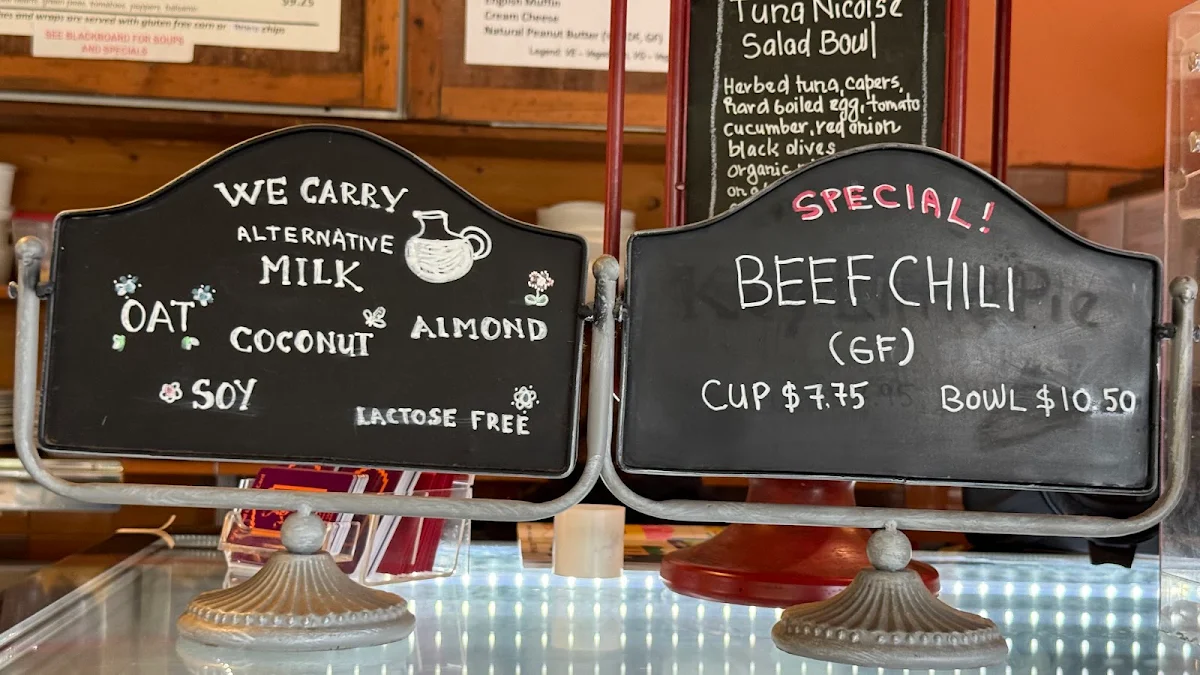 $9.25
and wraps are served with gluten free corn or chips
SEE BLACKBOARD FOR SOUPS
AND SPECIALS
English Muffin
Cream Cheese
Natural Peanut Butter
Tuna Nicoise
Salad Bowl
Herbed tuna, capers,
hard boiled egg, tomato
cucumber, red onion
black olives
organic
WE CARRY
ALTERNATIVE
MILK
OAT
COCONUT
ALMOND
SOY
LACTOSE FREE
SPECIAL!
BEEF CHILI
(GF)
CUP $7.75 BOWL $10.50
Pie